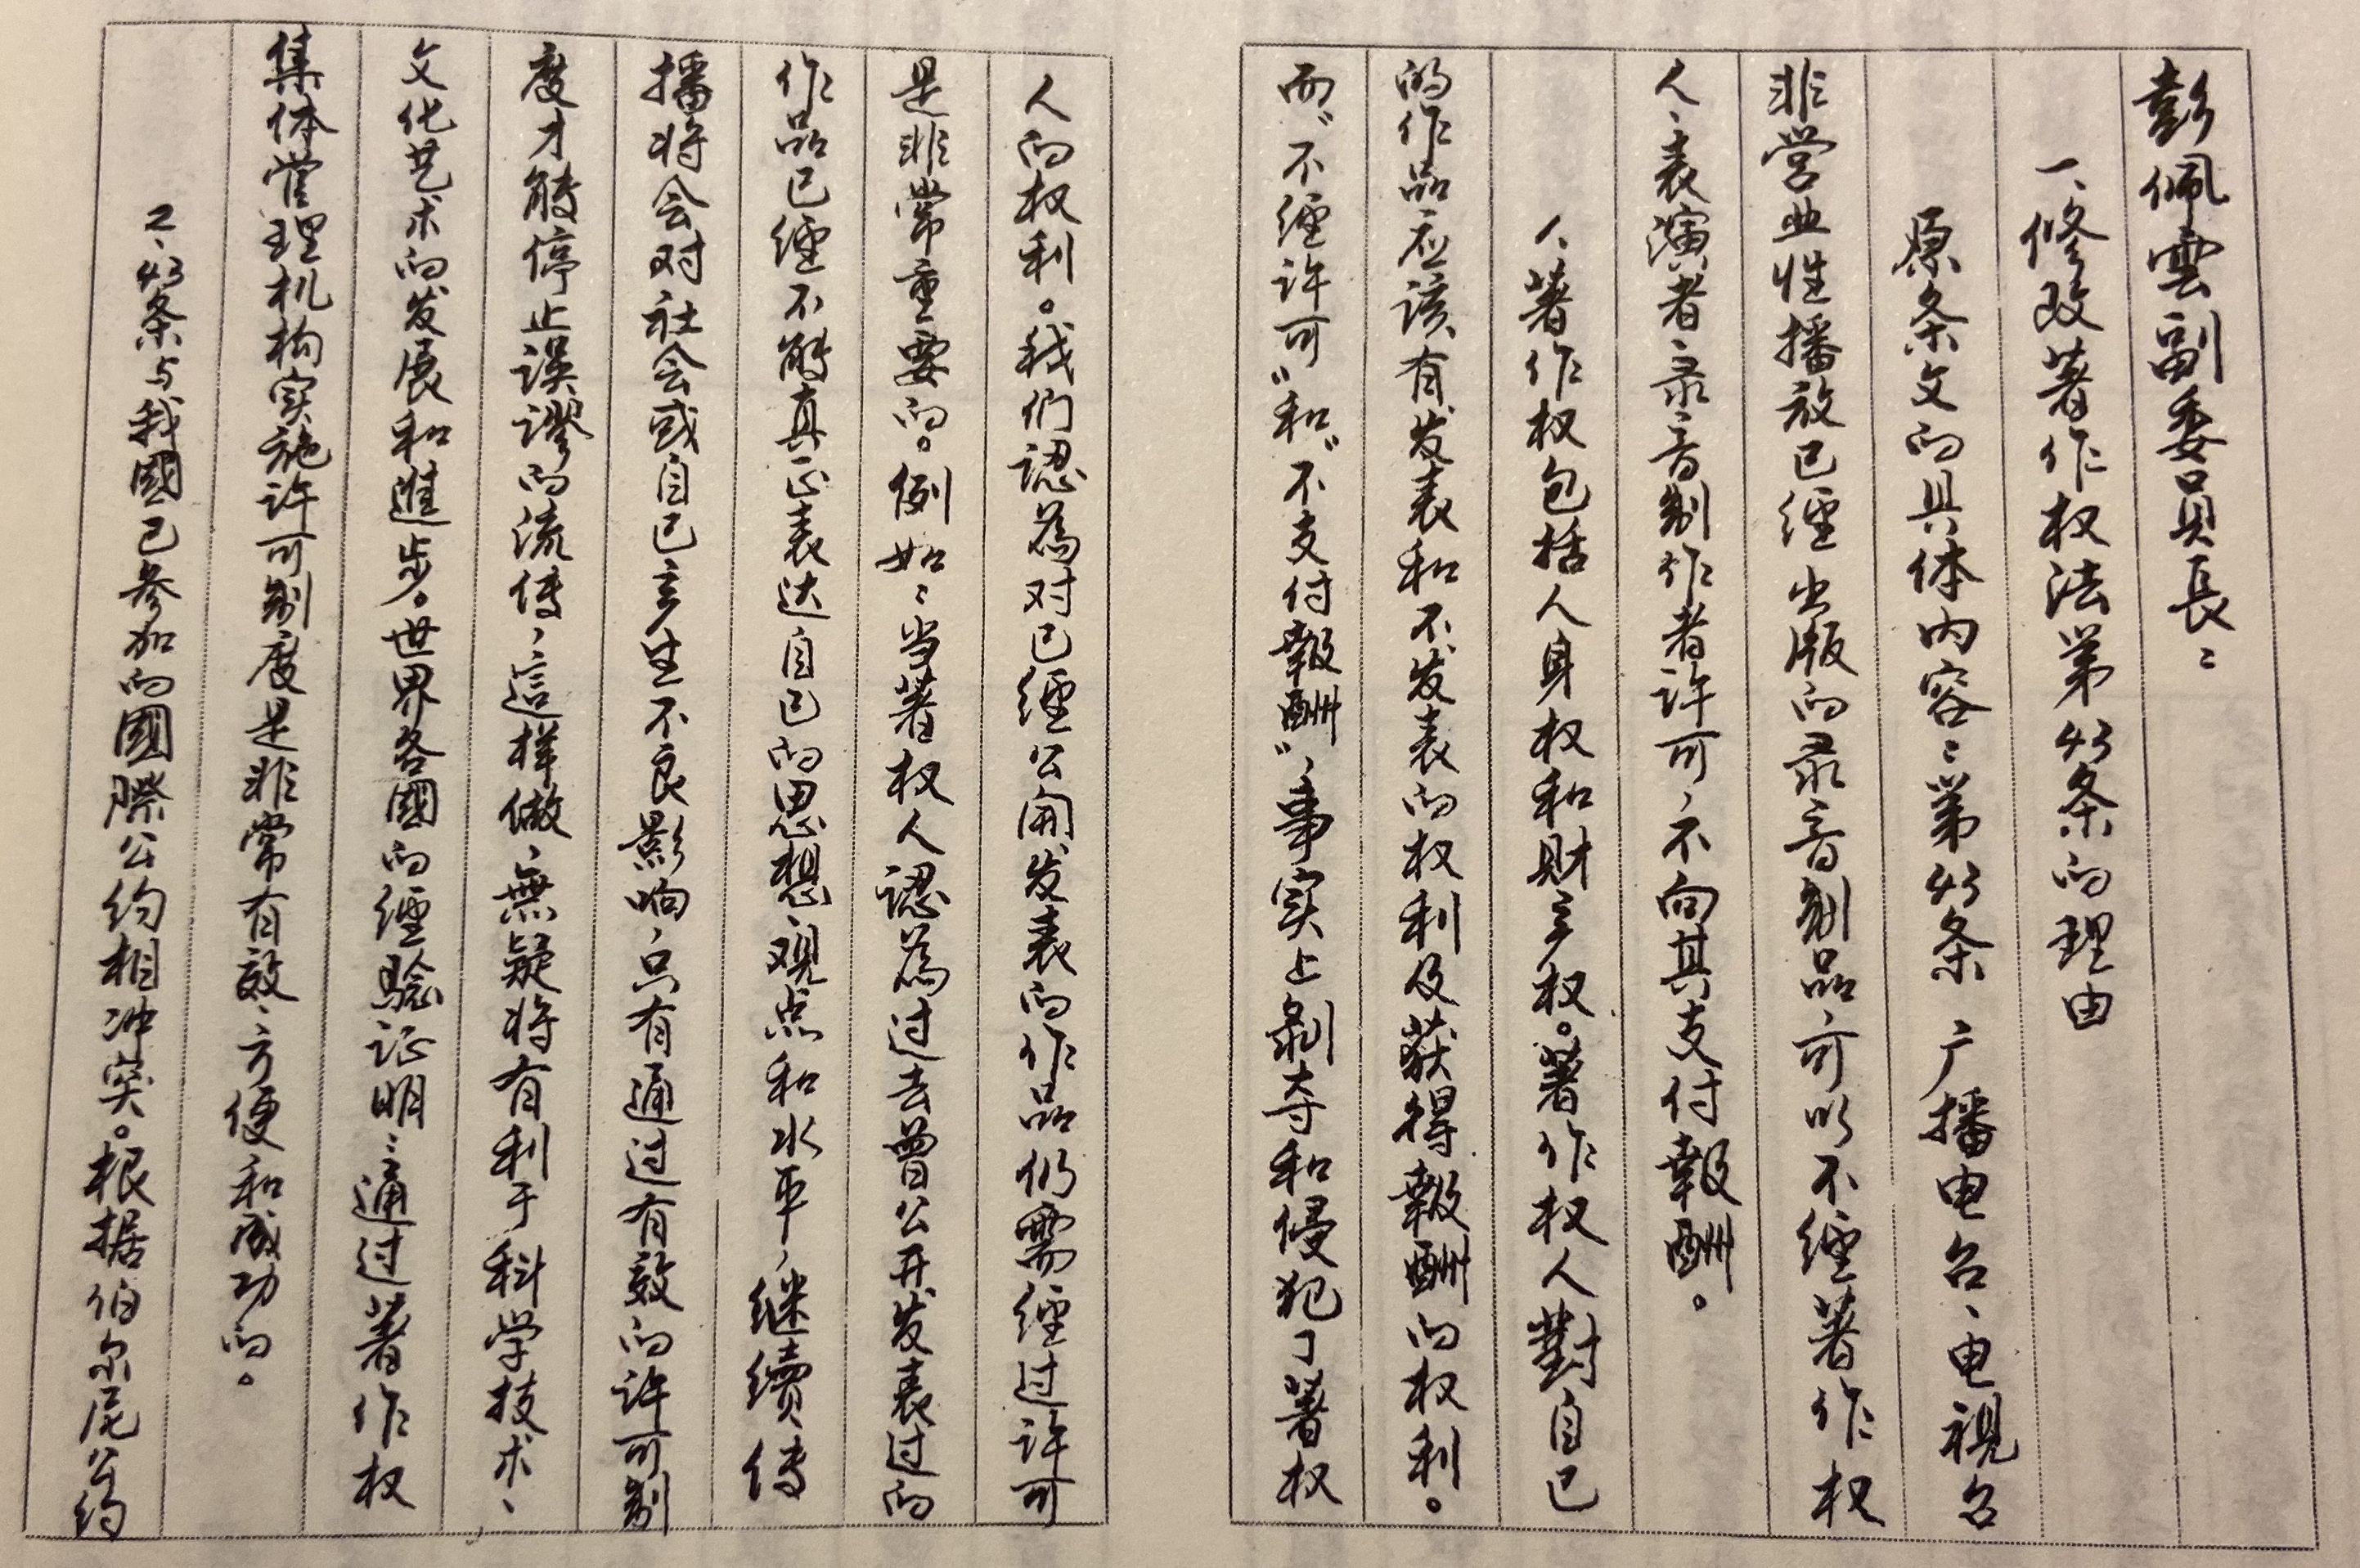 彭佩雲副委員長：
一、修改著作权法第43条的理由
原条文的具体内容：第43条 广播电台、电视台
非营业性播放已經出版的录音制品，可以不經著作权
人、表演者、录音制作者许可，不向其支付報酬。
1、著作权包括人身权和财产权。著作权人對自己
的作品应该有发表和不发表的权利及获得報酬的权利。
而“不經许可”和“不支付報酬”，事实上剥夺和侵犯了著权
人的权利。我们認為对已經公開发表的作品仍需經过许可
是非常重要的。例如：当著权人認為过去曾公开发表过的
作品已經不能真正表达自己的思想、观点和水平，继續传
播将会对社会或自己产生不良影响，只有通过有效的许可制
度才能停止误谬的流传，這样做，無疑将有利于科学技术、
文化艺术的发展和進步。世界各國的經驗证明：通过著作权
集体管理机构实施许可制度是非常有效、方便和成功的。
2、43条与我國已参加的國際公约相冲突。根据伯尔尼公约